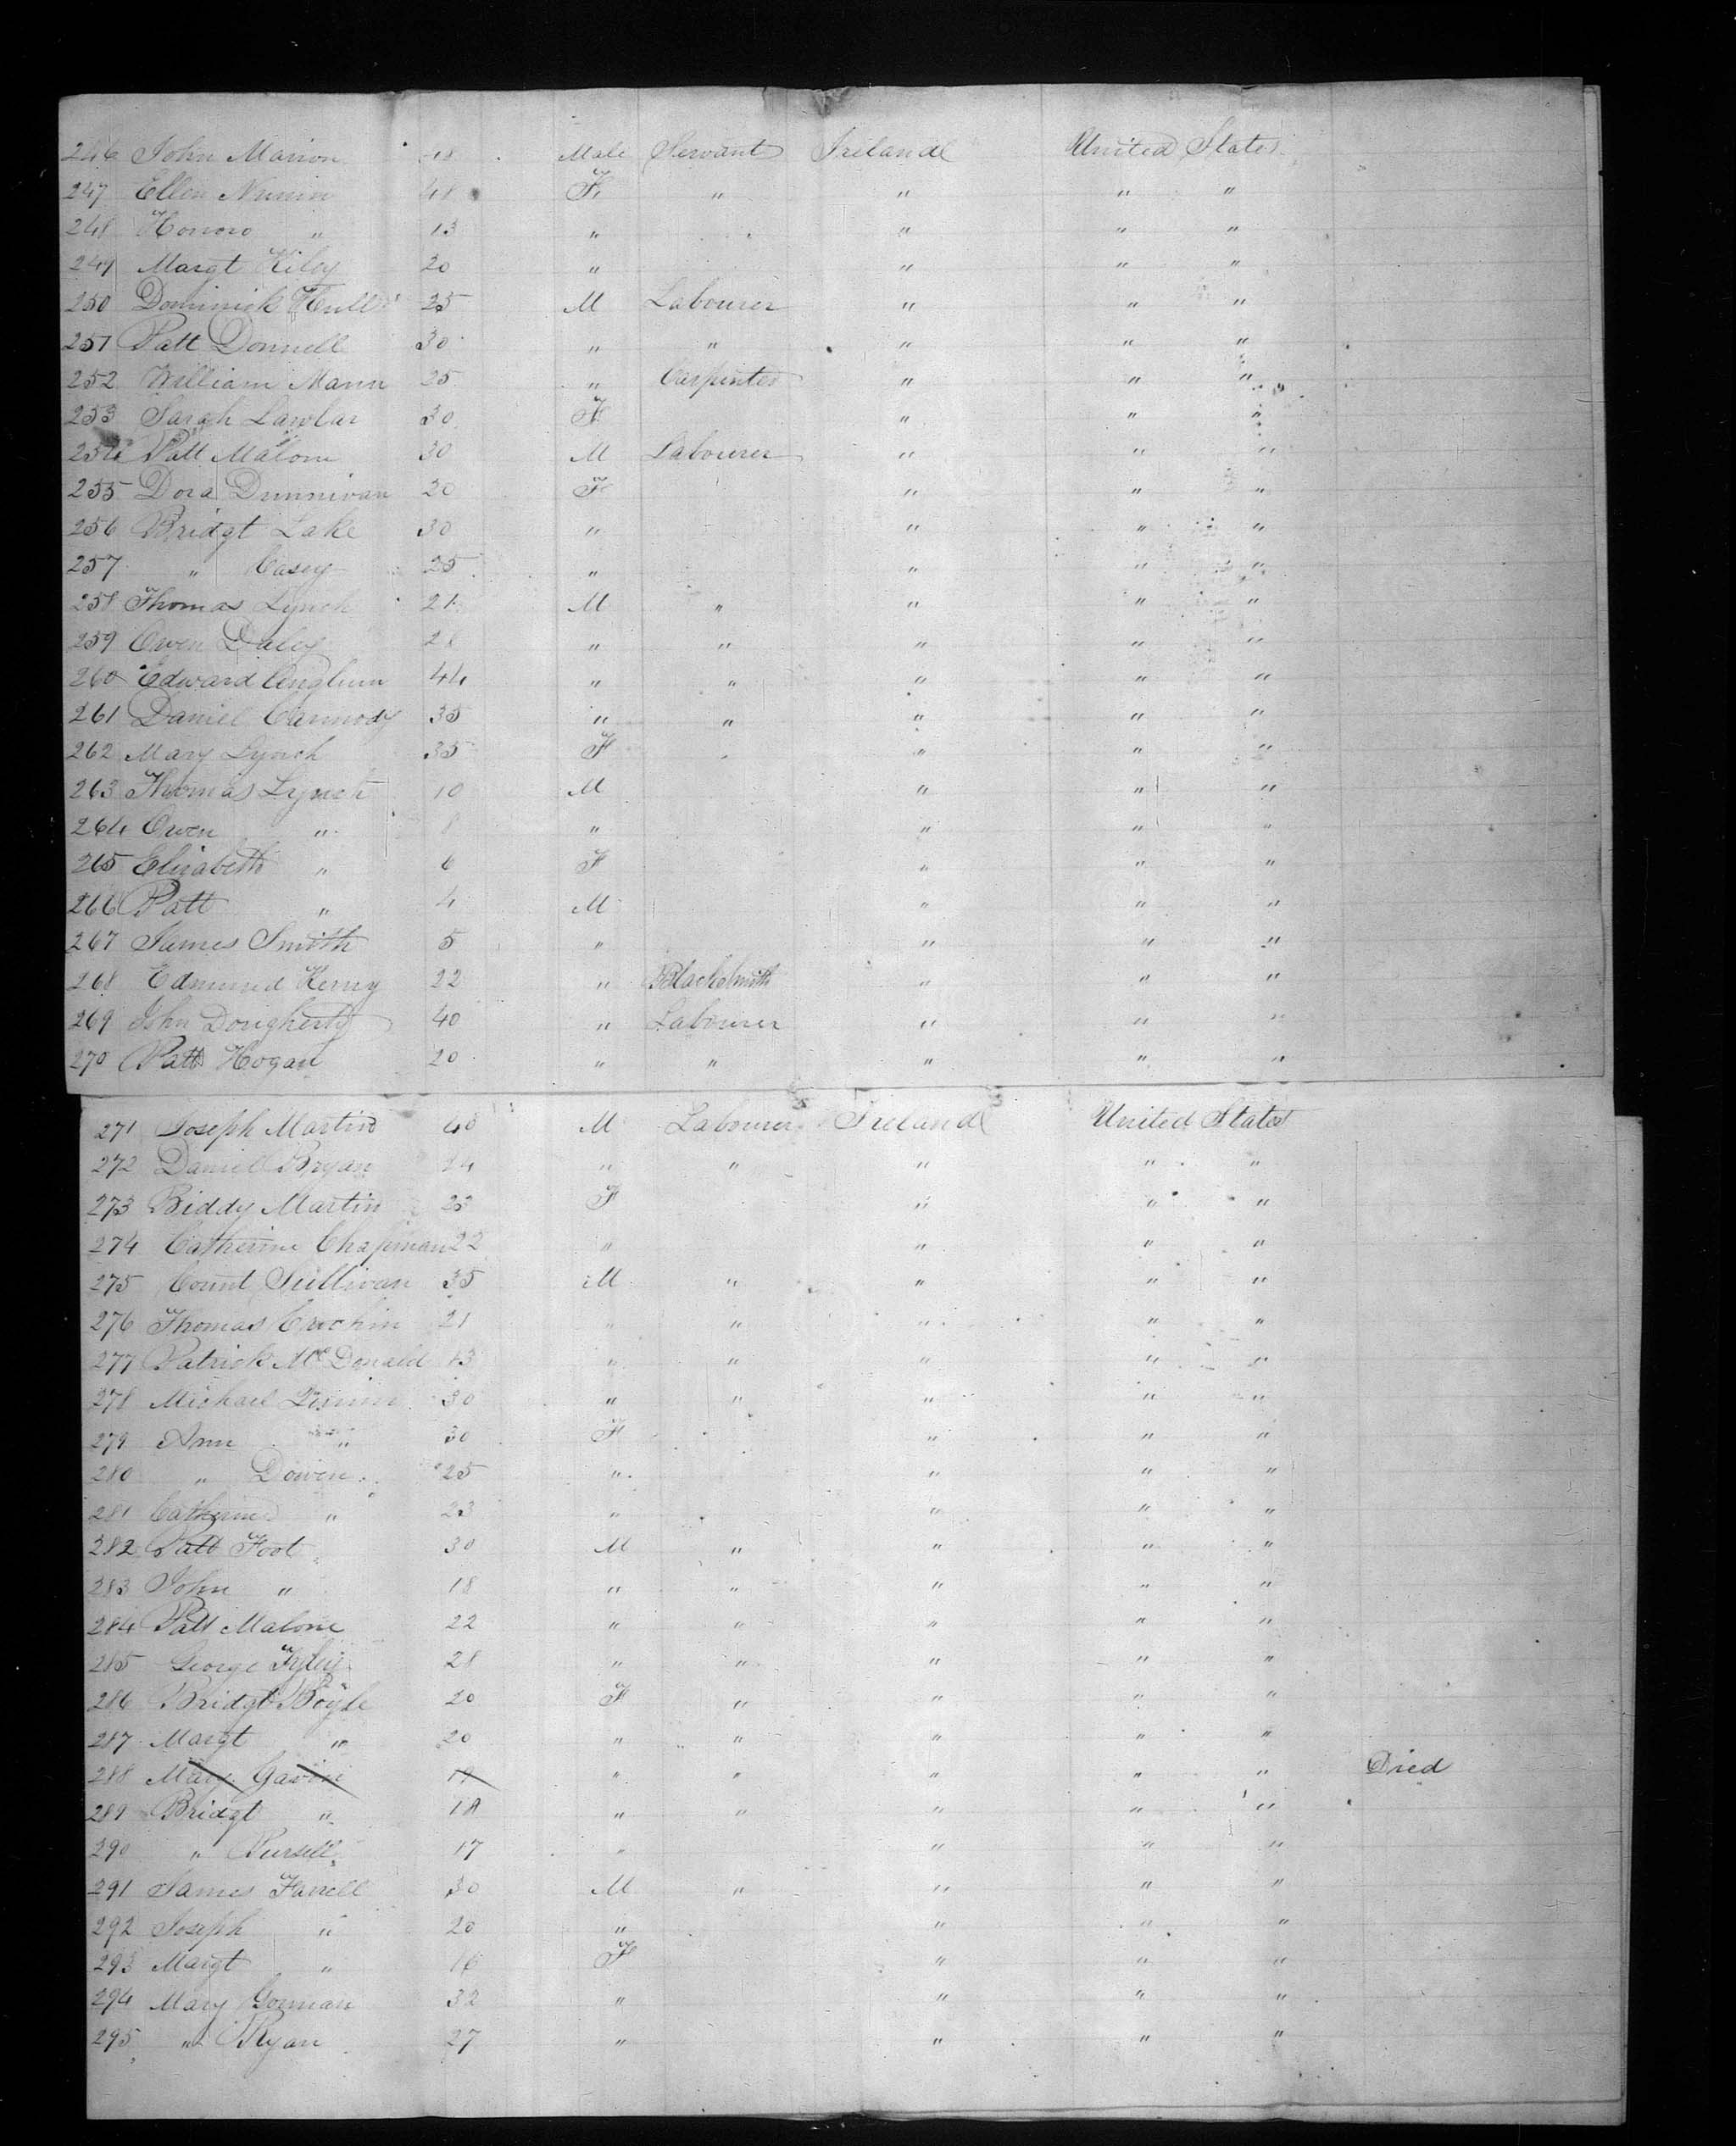 246 John Marion 18 Male Servant Ireland United States
247 Ellen Nunin 48 F " " " "
248 Honoro " 13 " " " "
249 Margt Kiley 20 " " " "
250 Dominick Hull 25 M Labourer " " "
251 Patt Donnell 30 " " " " "
252 William Mann 25 " Carpinter " " "
253 Sarah Lawlar 30 F " " "
254 Patt Malone 30 M Labourer " " "
255 Dora Dunnivan 20 F " " "
256 Bridgt Lake 30 " " " "
257 " Casey 25 " " " "
258 Thomas Lynch 21 M " " " "
259 Owen Daley 28 " " " " "
260 Edward 44 " " " " "
261 Daniel Carmody 35 " " " " "
262 Mary Lynch 35 F " " "
263 Thomas Lynch 10 M " " "
264 Owen " 8 " " " "
265 Elizabeth " 6 F " " "
266 Patt " 4 M " " "
267 James Smith 5 " " " "
268 Edmund 22 " BlackSmith " " "
269 John Dougherty 40 " Labourer " " "
270 Patt Hogan 20 " " " " "
271 Joseph Martin 40 M Labourer Ireland United States
272 Daniel Bryan 24 " " " " "
273 Biddy Martin 22 F " " "
274 Catherine Chapman 22 " " " "
275 Count Sullivan 35 M " " " "
276 Thomas 21 " " " " "
277 Patrick McDonald 13 " " " " "
278 Michael 30 " " " " "
279 Ann " 30 F " " "
280 " Dowen 25 " " " "
281 Catherine " 23 " " " "
282 Patt Foot 30 M " " " "
283 John " 18 " " " " "
284 Patt Malone 22 " " " " "
285 George 28 " " " " "
286 Bridgt Boyle 20 F " " " "
287 Margt " 20 " " " " "
288 Mary Gavin 19 " " " " " Died
289 Bridgt " 18 " " " " "
290 " Pursell 17 " " " "
291 James Farrell 30 M " " " "
292 Joseph " 20 " " " "
293 Margt " 16 F " " "
294 Mary Gorman 32 " " " "
295 " Ryan 27 " " " "